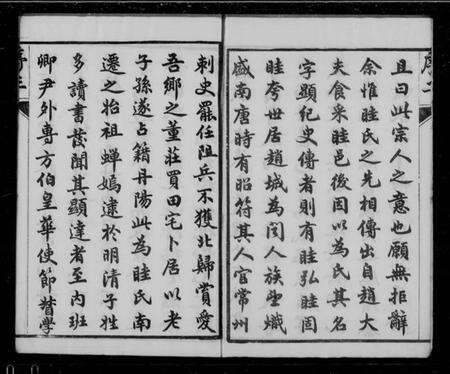 且曰此宗人之意也願無拒辭
余惟眭氏之先相傳出自趙大
夫食采眭邑後因以為氏其名
字顯紀史傳者則有眭弘眭固
眭夸世居趙城為閥人族望熾
盛南唐時有昭符其人官常州
刺史罷任阻兵不獲北歸賞愛
吾鄉之董莊買田宅卜居以老
子孫遂占籍丹陽此為眭氏南
遷之始祖蟬嫣逮於明清子姓
多讀書發聞其顯達者至內班
卿尹外專方伯皇華使節督學
序二